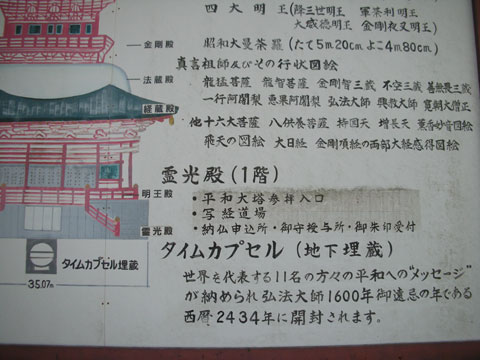 四大明王(降三世明王 軍荼利明王
大威徳明王 金剛夜叉明王)
金剛殿
昭和大曼荼羅(たて5m.20cmよこ4m.80cm)
真言祖師及びその行状図絵
法蔵殿
龍猛菩薩 龍智菩薩 金剛智三蔵 不空三蔵 善無畏三蔵
経蔵殿
一行阿闍梨 恵果阿闍梨 弘法大師 興教大師 寛朝大僧正
他十六大菩薩 八供養菩薩 持国天 増長天 薫香妙音図絵
飛天の図絵 大日経 金剛頂経の両部大経感得図絵
霊光殿(1階)
明王殿
・平和大塔参拝入口
・写経道場
霊光殿
・納仏申込所・御守授与所・御朱印受付
タイムカプセル埋蔵
35.07m
タイムカプセル(地下埋蔵)
世界を代表する11名の方々の平和への"メッセージ"
が納められ弘法大師1600年御遠忌の年である
西暦2434年に開封されます。